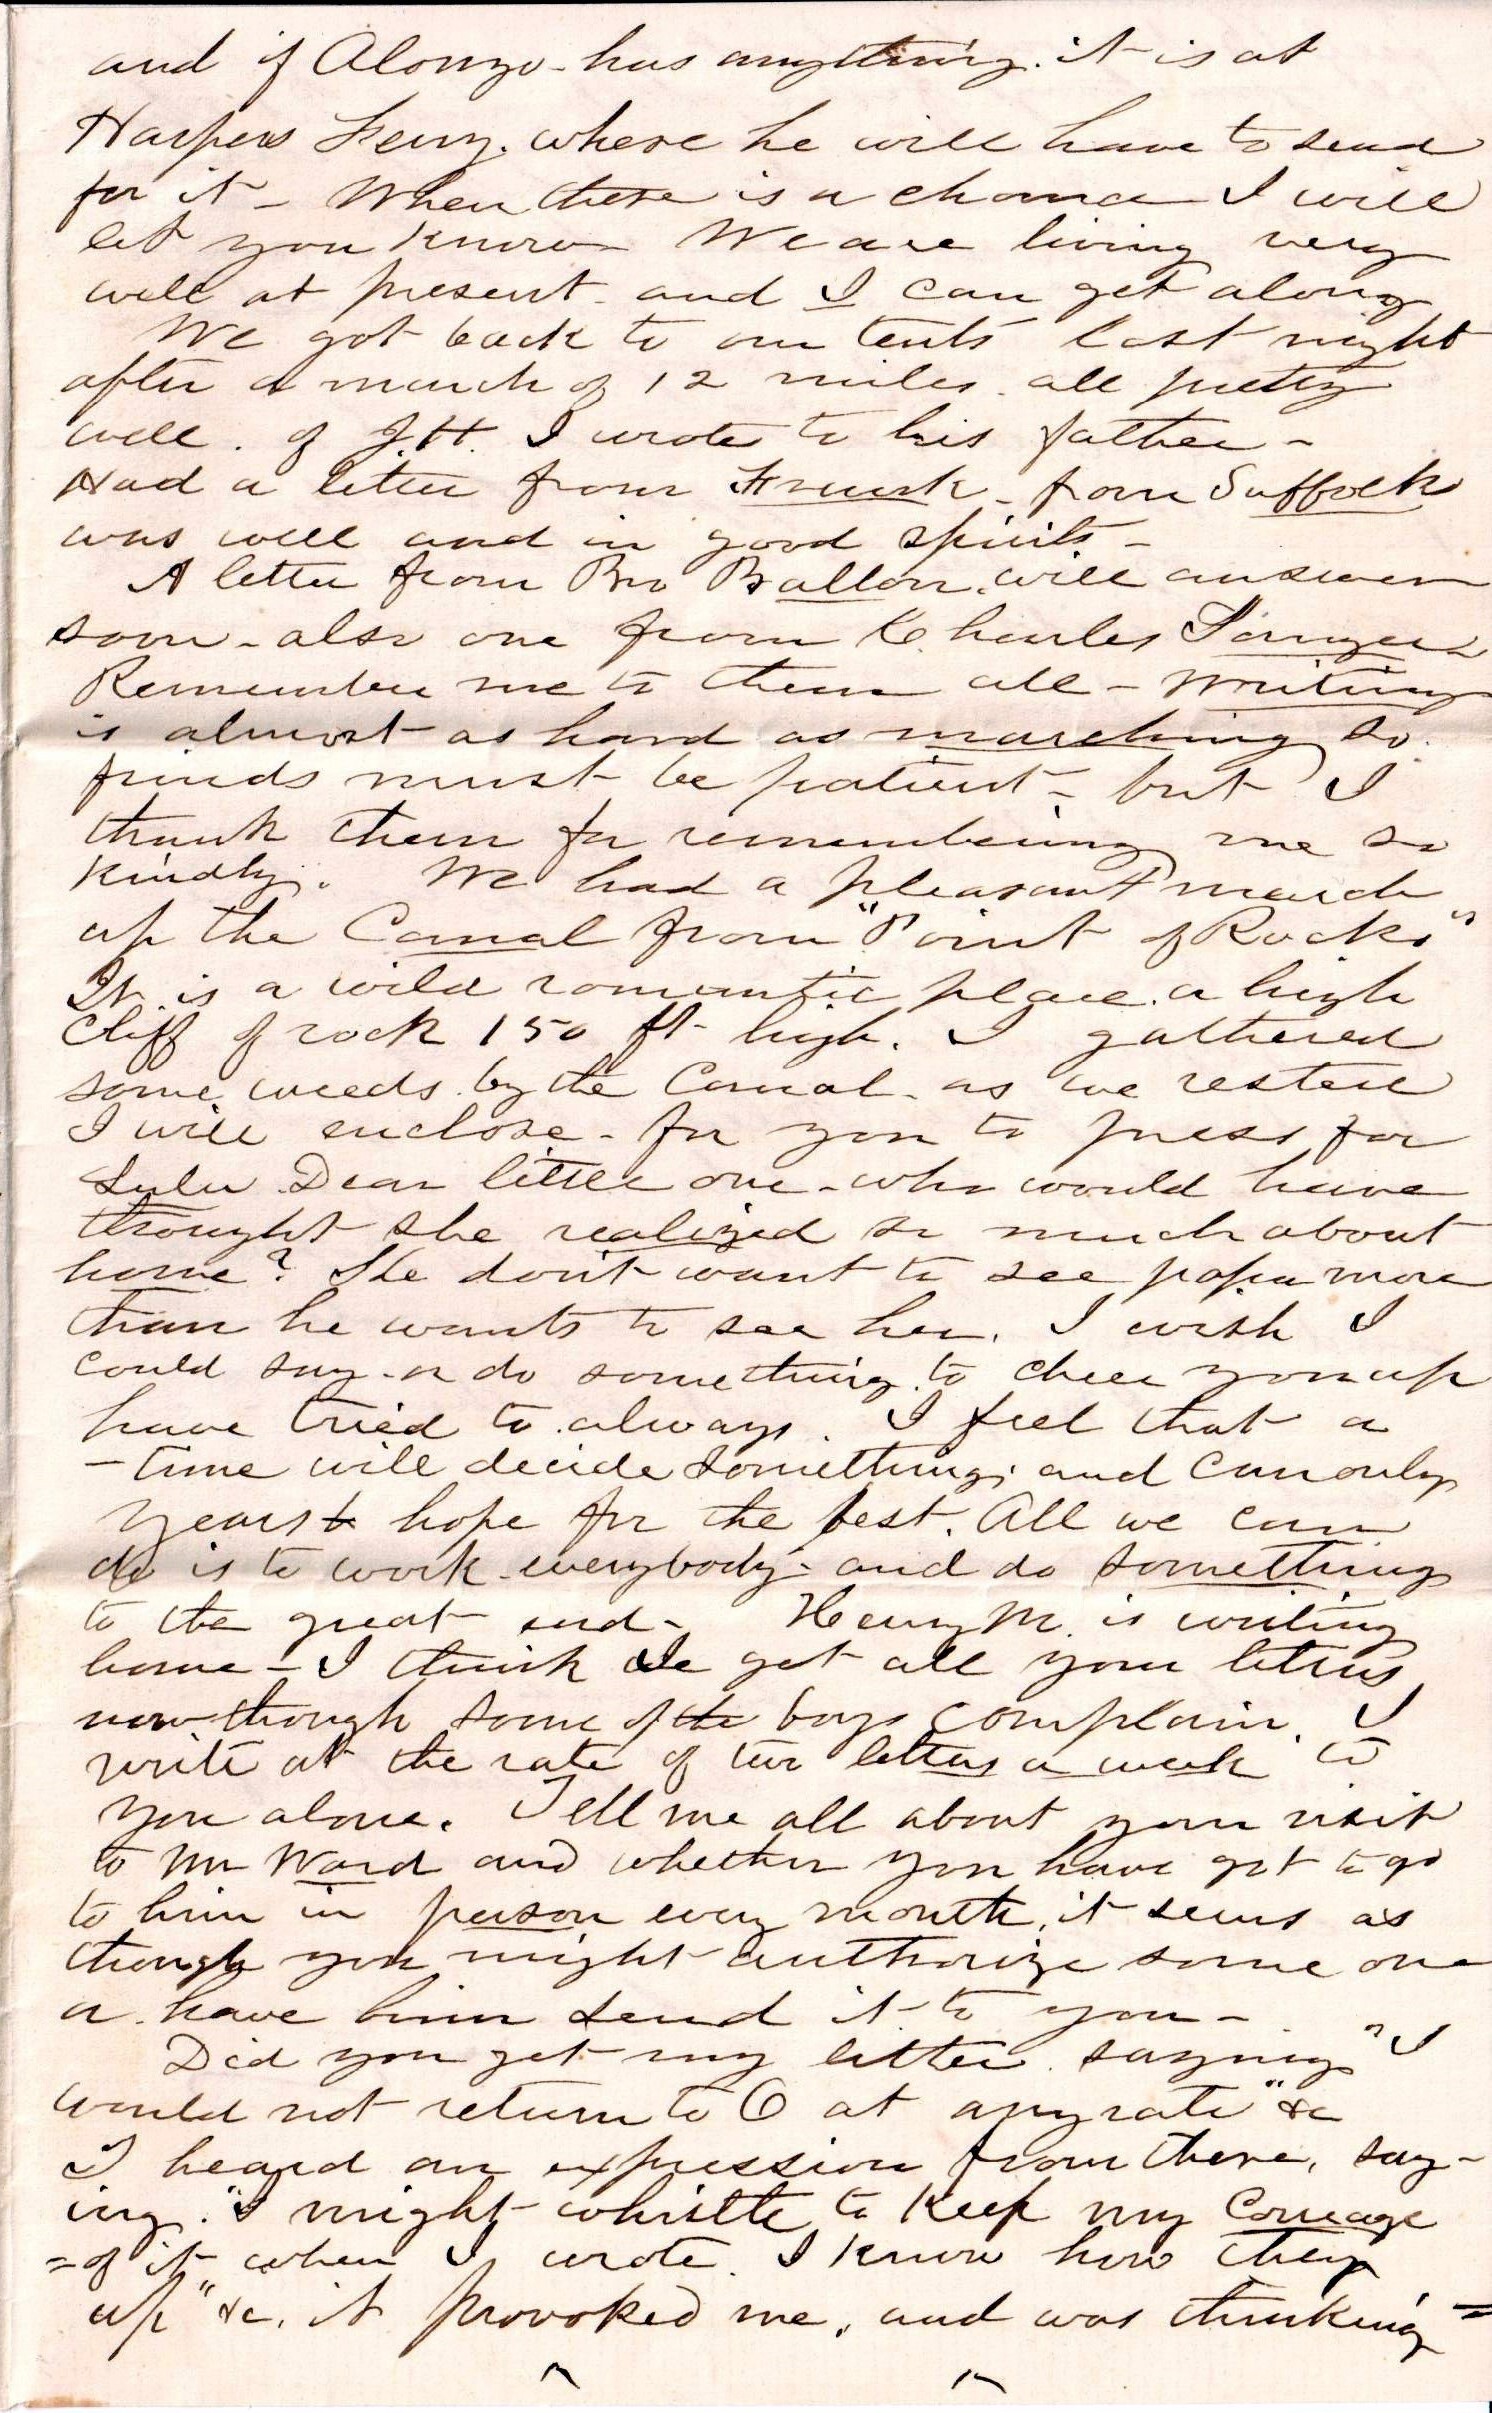 and if Alonzo - has anything. it is at
Harpers Ferry. where he will have to send
for it - When there is a chance I will
let you know We are living very
well at present. and I can get along
We got back to our tents last night
after a march of 12 miles. all pretty
well. of J.H. I wrote to his father -
Had a letter from Frank - from Suffolk
was well and in good spirits -
A letter from Bro Ballou. will answer
soon - also one from Charles
Remember me to them all - Writing
is almost as hard as marching so
friends must be patient - but I
thank them for remembering me so
kindly. We had a pleasant march
up the Canal from "Point of Rocks"
It is a wild romantic place. a high
cliff of rock 150 ft high. I gathered
some weeds by the Canal - as we rested
I will enclose - for you to press for
Lulu. Dear little one - who would have
thought she realized so much about
home? She don't want to see papa more
than he wants to see her. I wish I
could say - or do something to cheer you up
have tried to always. I feel that a
- time will decide something; and can only
years hope for the best. All we can
do is to work - everybody - and do something
to the great end - Henry M. is writing
home - I think we get all your letters
now though some of the boys complain. I
write at the rate of two letters a week to
you alone. Tell me all about your visit
to Mr Ward and whether you have got to go
to him in person every month, it seems as
though you might authorize some one
or have him send it to you -
Did you get my letter saying "I
would not return to O at any rate" &c
I heard an expression from there, say-
ing. "I might whistle to keep my courage
= of it when I wrote. I know how they
up" &c. it provoked me, and was thinking =